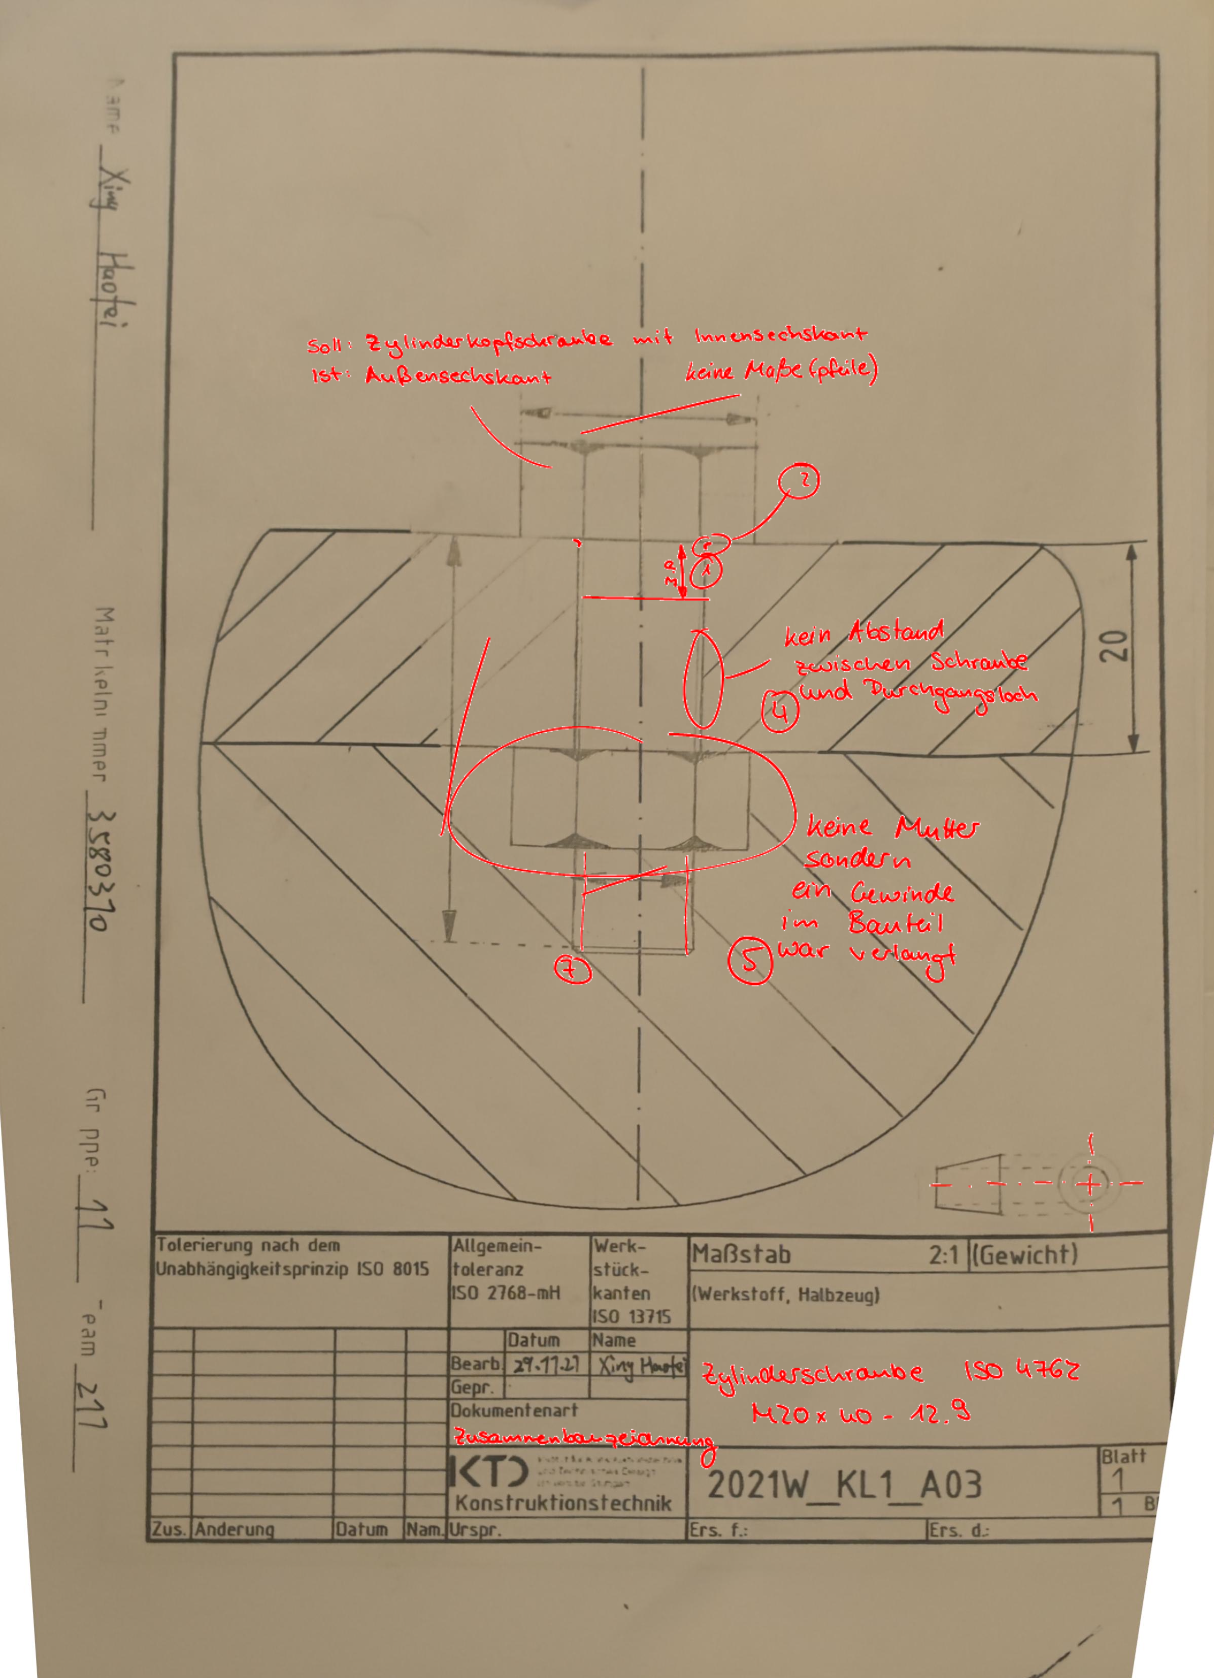 Name Xing Haofei
Matrikelnummer 3580310
Gruppe: 11 Team 217
Soll: Zylinderkopfschraube mit Innensechskant
Ist: Außensechskant
keine Maße (pfeile)
2
1
20
kein Abstand
zwischen Schraube
und Durchgangsloch
4
keine Mutter
sondern
ein Gewinde
im Bauteil
war verlangt
5
7
Tolerierung nach dem
Unabhängigkeitsprinzip ISO 8015
Allgemein-
toleranz
ISO 2768-mH
Werk-
stück-
kanten
ISO 13715
Maßstab 2:1 (Gewicht)
(Werkstoff, Halbzeug)
Datum Name
Bearb. 29.11.21 Xing Haofei
Gepr.
Dokumentenart
Zusammenbauzeichnung
Zylinderschraube ISO 4762
M20 x 40 - 12.9
KTD
Konstruktionstechnik
2021W_KL1_A03
Blatt
1
1 Bl
Zus. Änderung Datum Nam. Urspr. Ers. f.: Ers. d.: